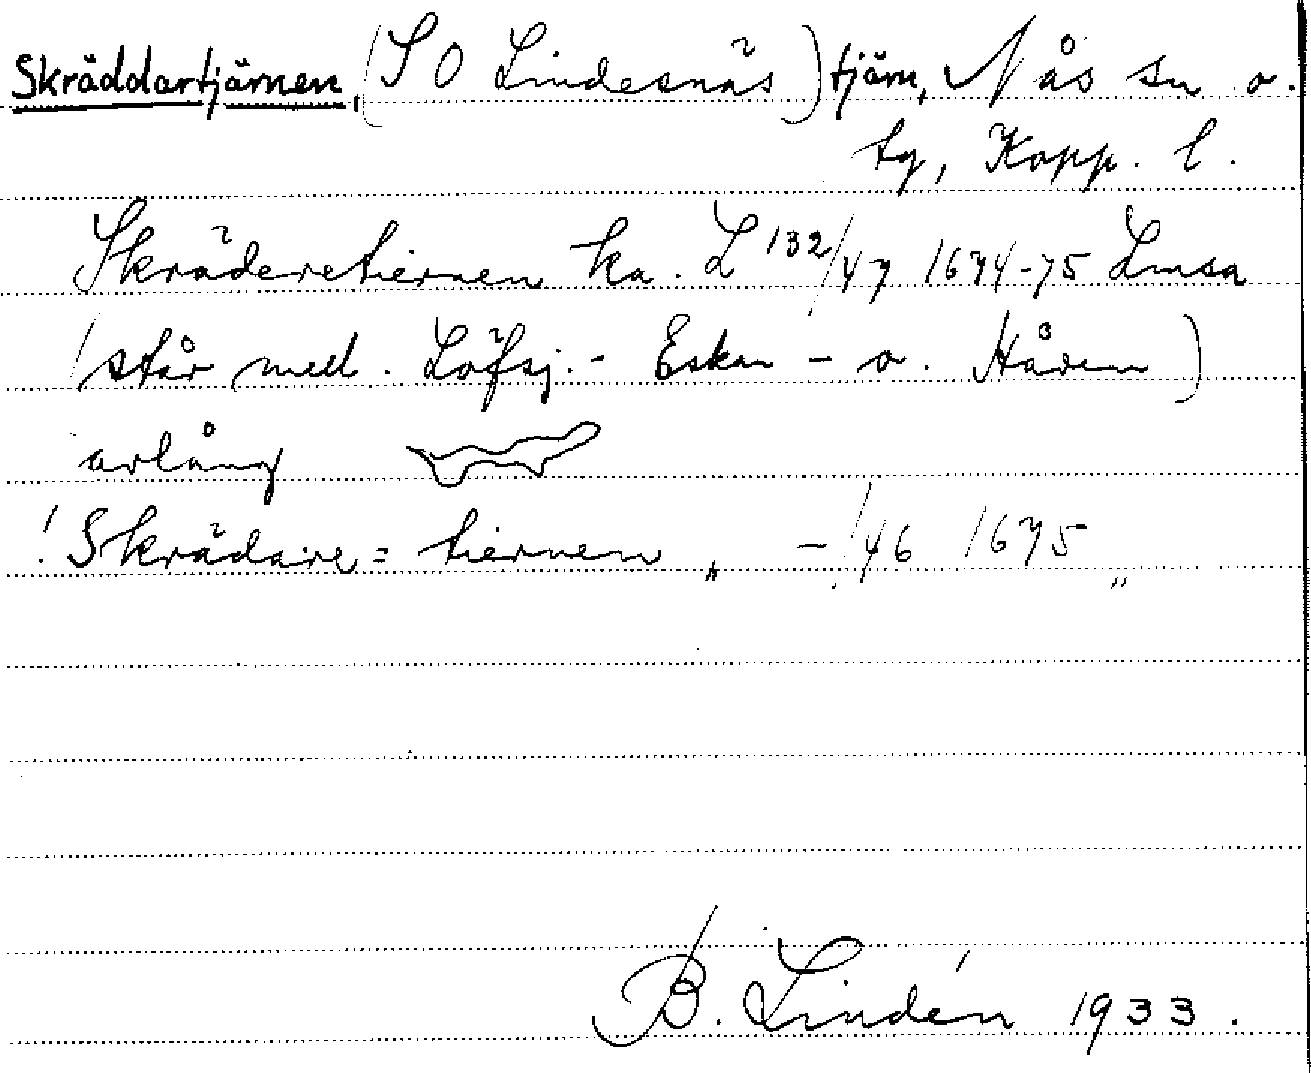 Skräddartjärnen, (SO Lindesnäs) tjärn, Nås sn o.
tg, Kopp. l.
Skräderetiernen ka. L 132/47 1674-75 Lmsa
(står mell. Löfsj.- Eskn - o. Håven)
avlång
! Skrädare= tiernen „ - /46 1675 „
B. Lindén 1933.